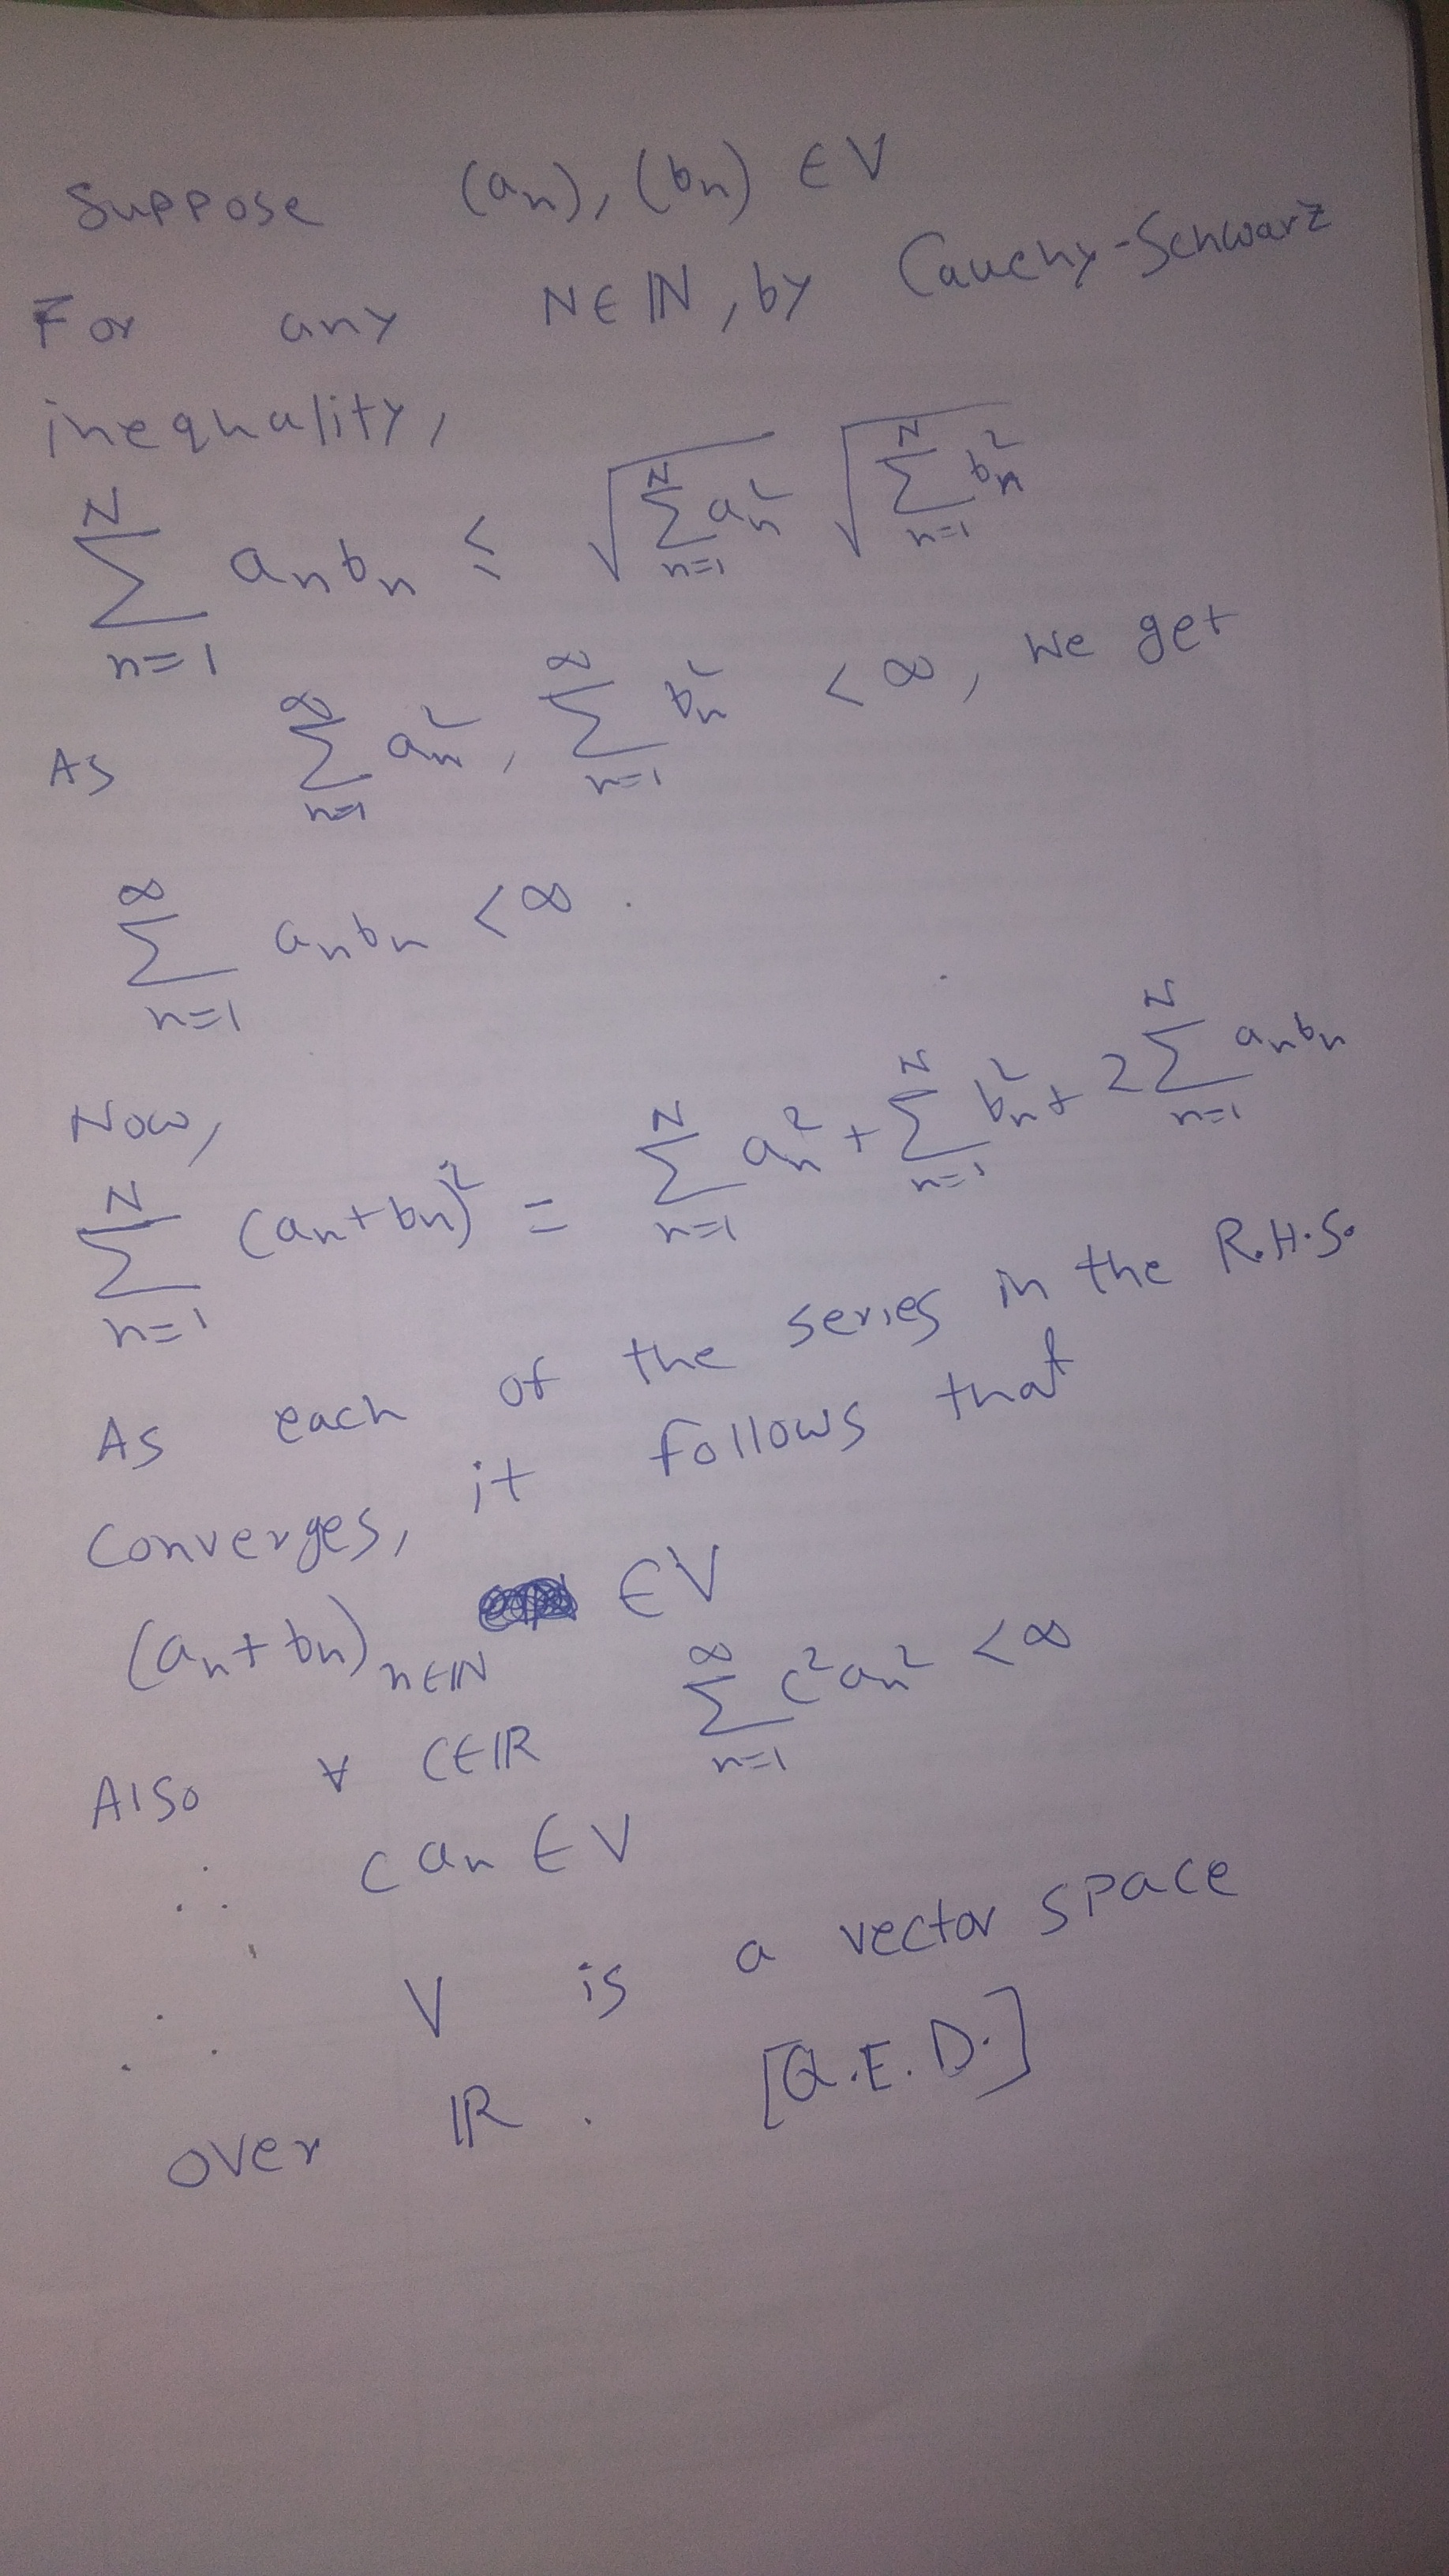 Suppose (aₙ), (bₙ) ∈ V
For any N∈ℕ, by Cauchy-Schwarz
inequality,
∑_{n=1}^{N} aₙbₙ ≤ √(∑_{n=1}^{N} aₙ²) √(∑_{n=1}^{N} bₙ²)
As ∑_{n=1}^{∞} aₙ², ∑_{n=1}^{∞} bₙ² < ∞, we get
∑_{n=1}^{∞} aₙbₙ < ∞.
Now,
∑_{n=1}^{N} (aₙ+bₙ)² = ∑_{n=1}^{N} aₙ² + ∑_{n=1}^{N} bₙ² + 2∑_{n=1}^{N} aₙbₙ
As each of the series in the R.H.S.
converges, it follows that
(aₙ+bₙ)_{n∈ℕ} ∈ V
Also ∀ c∈ℝ ∑_{n=1}^{∞} c²aₙ² < ∞
∴ c aₙ ∈ V
∴ V is a vector space
over ℝ. [Q.E.D.]